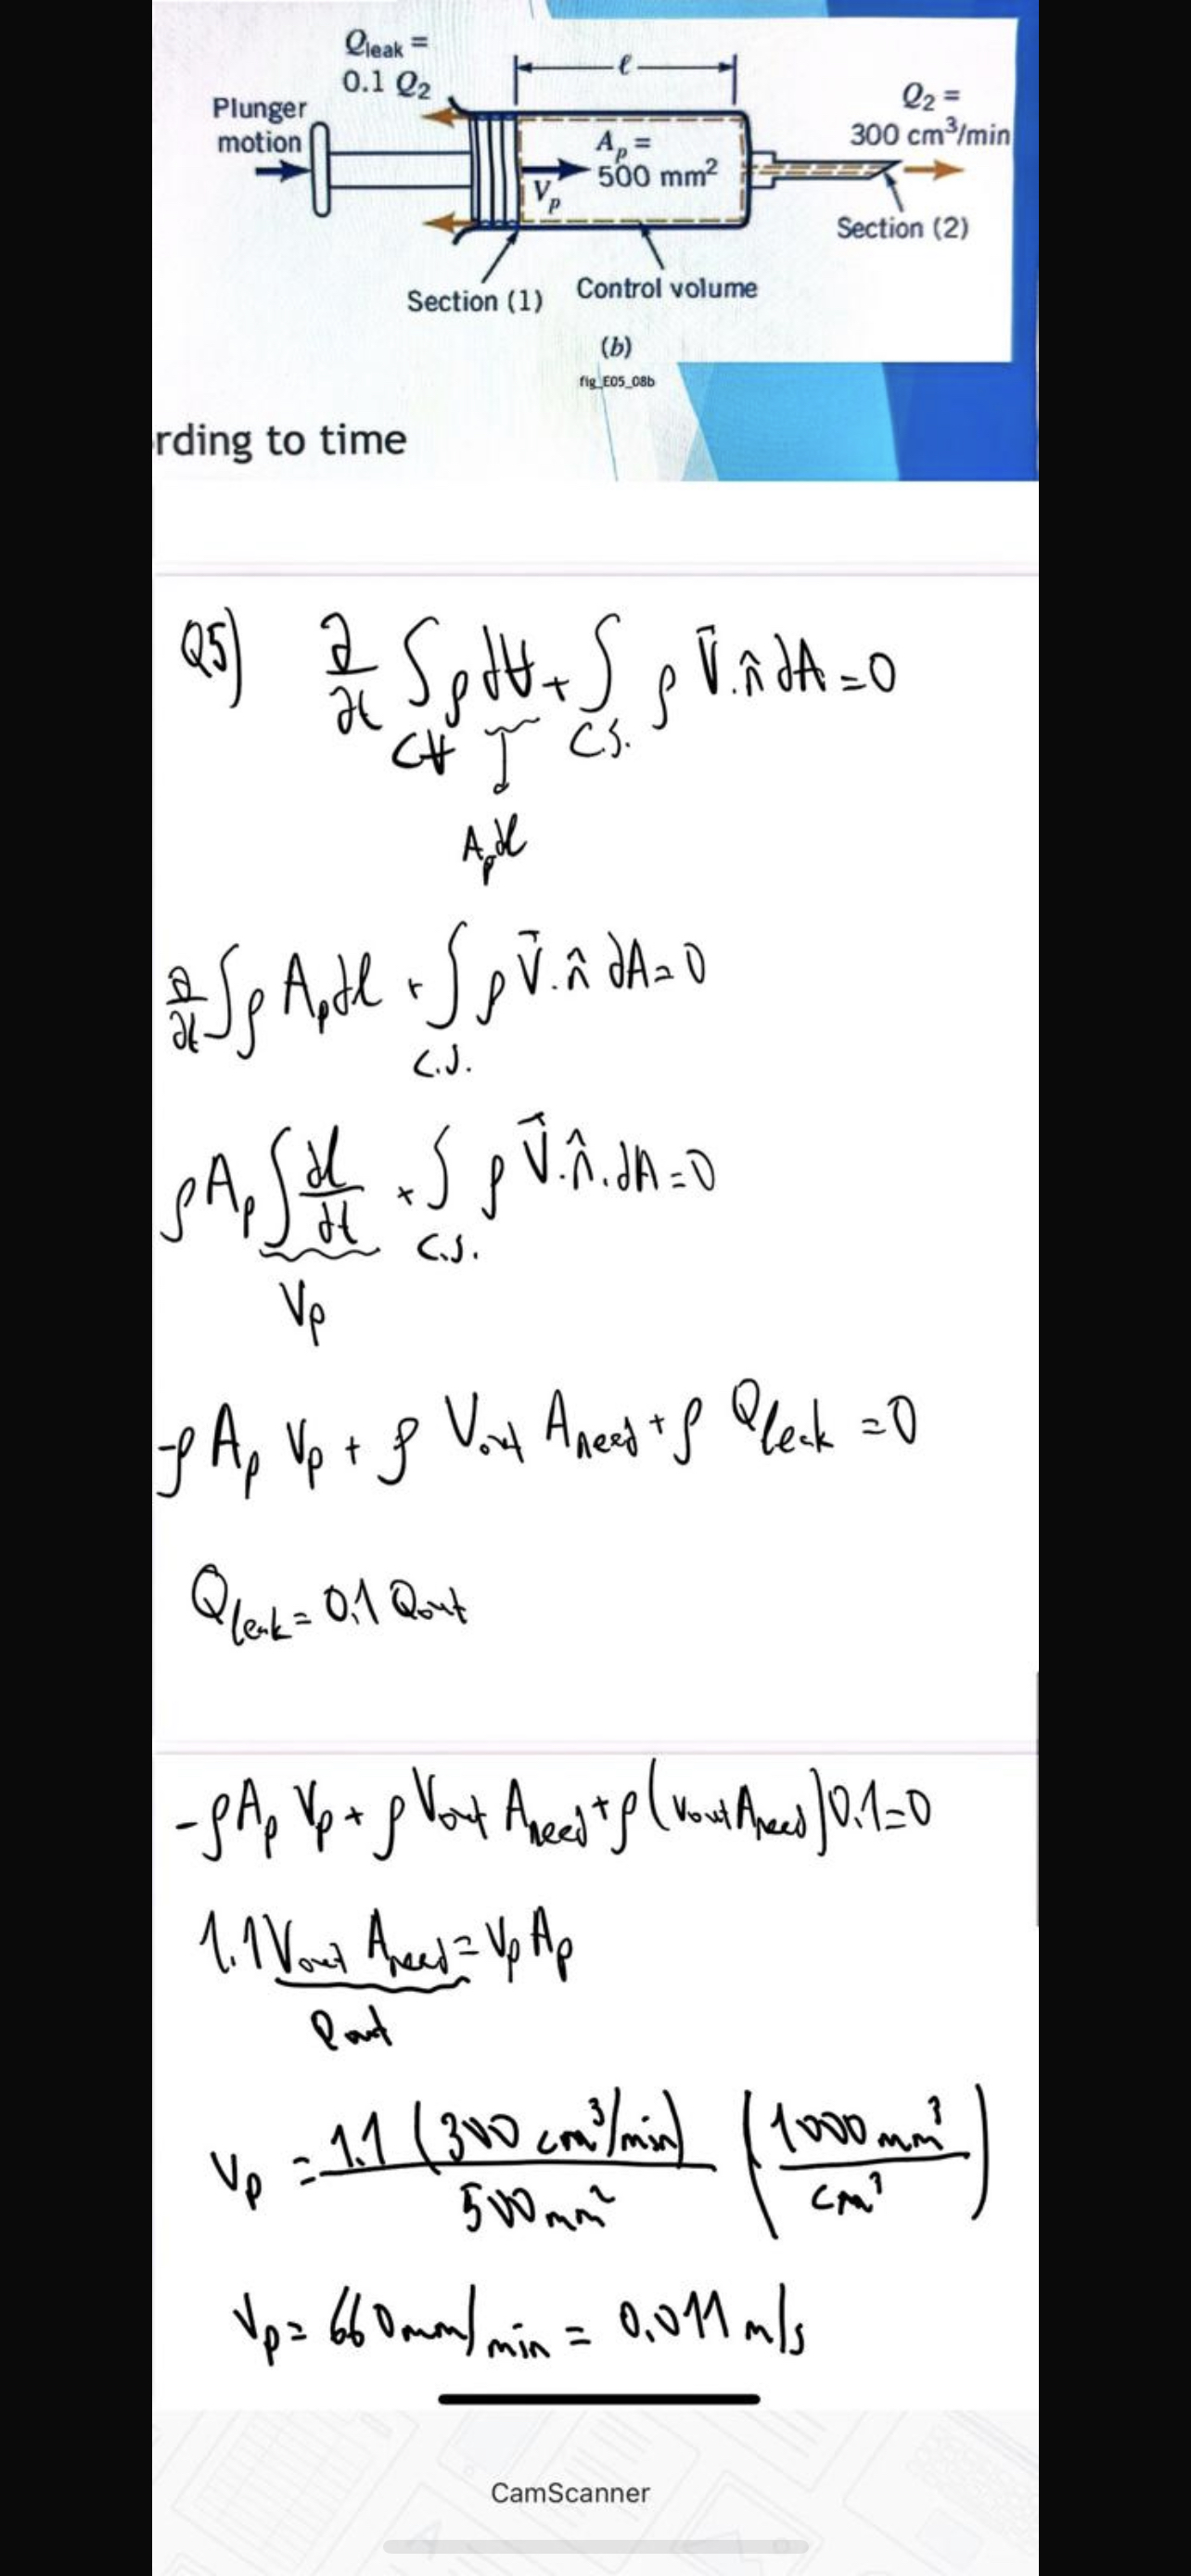 Qleak =
0.1 Q₂
Plunger
motion
ℓ
Q₂ =
300 cm³/min
Aₚ =
500 mm²
Vₚ
Section (2)
Section (1)
Control volume
(b)
fig_E05_08b
rding to time
Q5) ∂/∂t ∫ ρ dV + ∫ ρ V̄.n̂ dA = 0
CV C.S.
Aₚdl
∂/∂t ∫ρ Aₚdl + ∫ ρ V̄.n̂ dA = 0
C.S.
ρAₚ ∫ dl/dt + ∫ ρ V̄.n̂.dA = 0
C.S.
Vₚ
-ρ Aₚ Vₚ + ρ Vout Aneed + ρ Qleak = 0
Qleak = 0.1 Qout
-ρAₚ Vₚ + ρ Vout Aneed + ρ (Vout Aneed) 0.1 = 0
1.1 Vout Aneed = Vₚ Aₚ
Qout
Vₚ = 1.1 (300 cm³/min) / 500 mm² (1000 mm³ / cm³)
Vₚ = 660 mm/min = 0.011 m/s
CamScanner